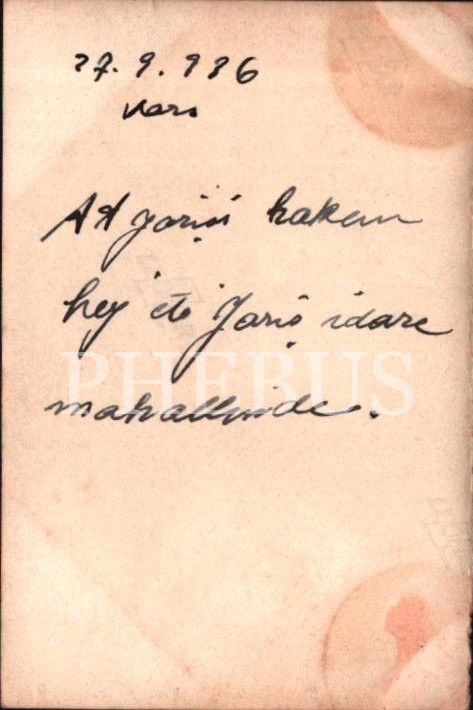 27.9.936
Kars
At yarışı hakem
hey'eti Yarış idare
mahallinde.
PHEBUS